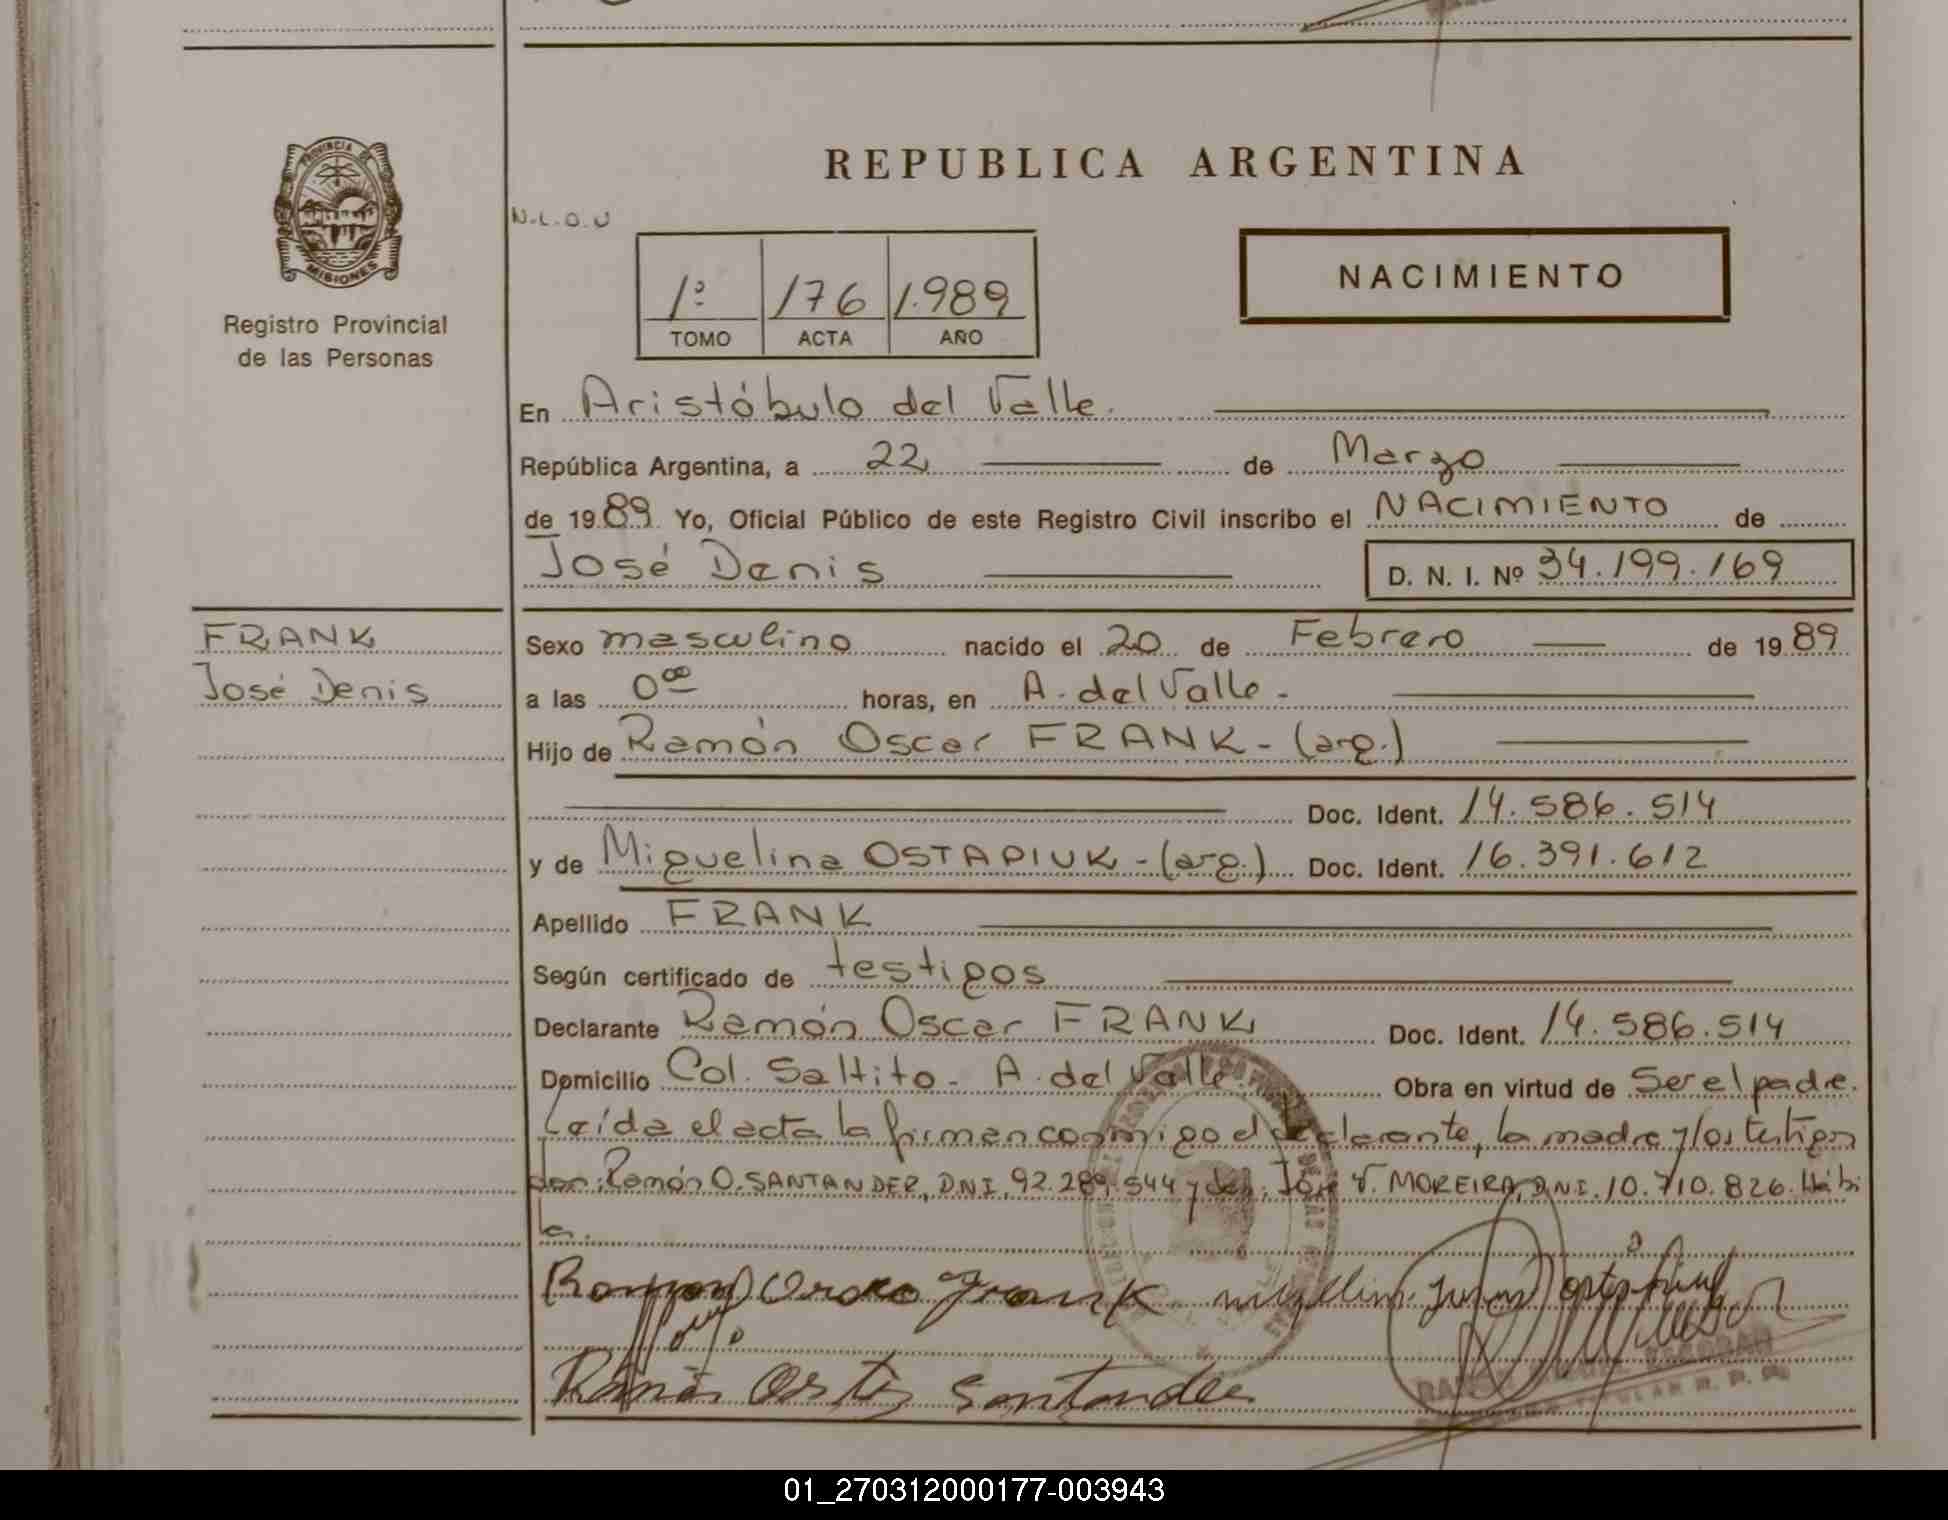 PROVINCIA DE
MISIONES
Registro Provincial
de las Personas
REPUBLICA ARGENTINA
N.L.O.U
1º 176 1.989
TOMO ACTA AÑO
NACIMIENTO
En Aristóbulo del Valle.
República Argentina, a 22 de Marzo
de 1989. Yo, Oficial Público de este Registro Civil inscribo el NACIMIENTO de
José Denis D. N. I. Nº 34.199.169
FRANK
José Denis
Sexo masculino nacido el 20 de Febrero de 1989
a las 0⁰⁰ horas, en A. del Valle -
Hijo de Ramón Oscar FRANK - (arg.)
Doc. Ident. 14.586.514
y de Miguelina OSTAPIUK - (arg.) Doc. Ident. 16.391.612
Apellido FRANK
Según certificado de testigos
Declarante Ramón Oscar FRANK Doc. Ident. 14.586.514
Domicilio Col. Saltito - A. del Valle. Obra en virtud de Ser el padre.
Leída el acta la firman conmigo el declarante, la madre y los testigos
don: Ramón O. SANTANDER, DNI. 92.289.544 y don: José V. MOREIRA, DNI. 10.710.826. Hábi
les.
Frank
Ramón Santander
01_270312000177-003943